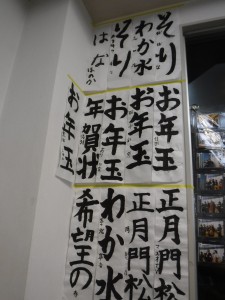 そり
わか水
そり
はな
ほのか
お年玉
お年玉
お年玉
年賀状
お年玉
正月門松
正月門松
わか水
希望の